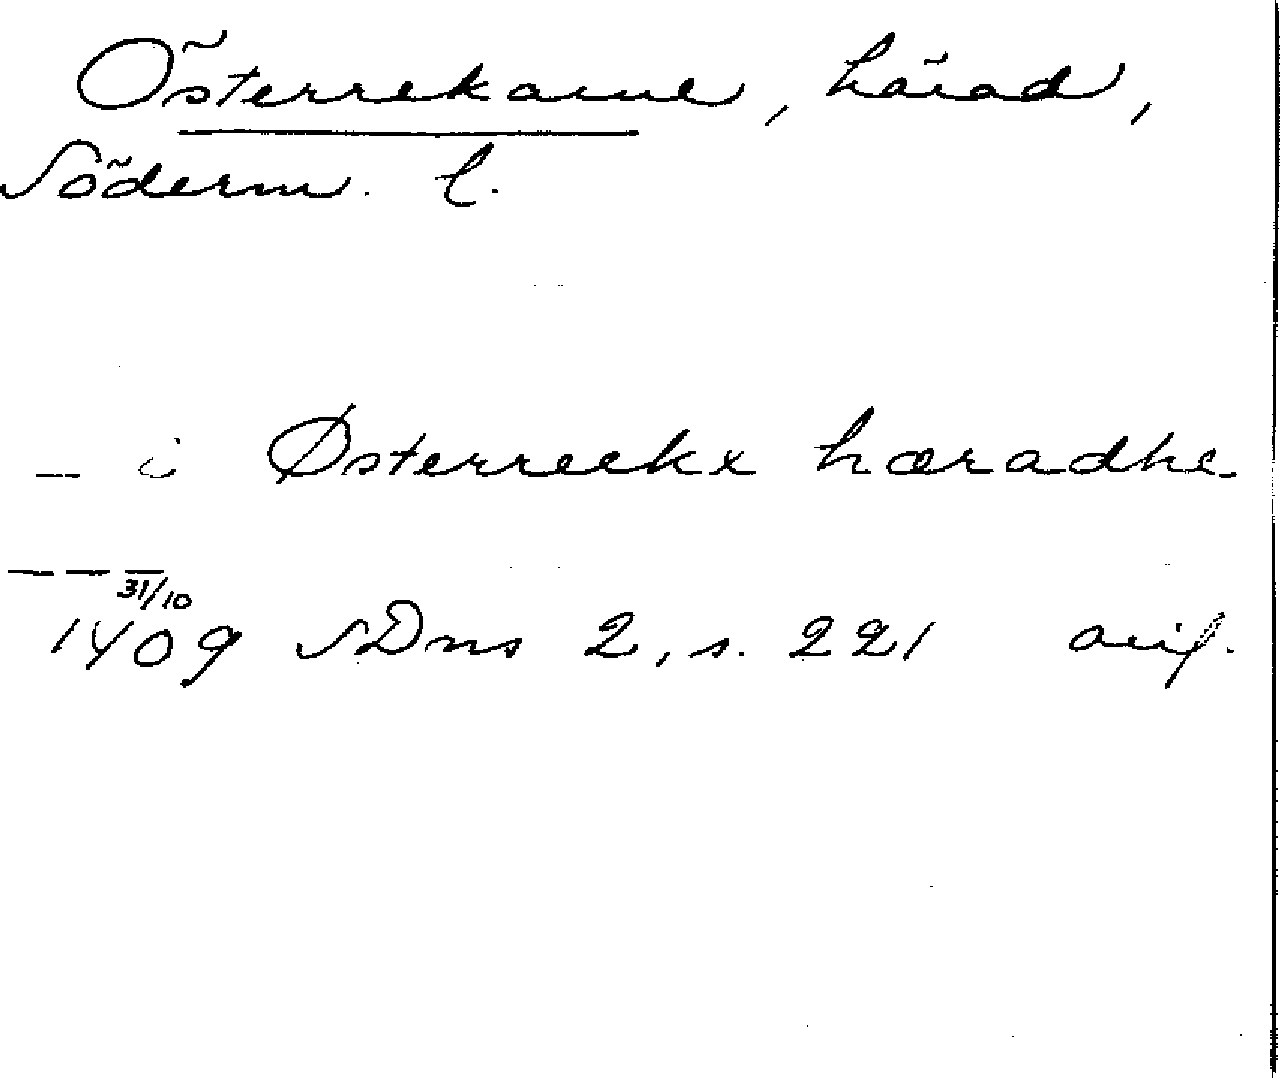 Österrekarne, härad,
Söderm. l.
– i Østerreekx hæradhe
– – –
31/10
1409 SDns 2, s. 221 avsk.